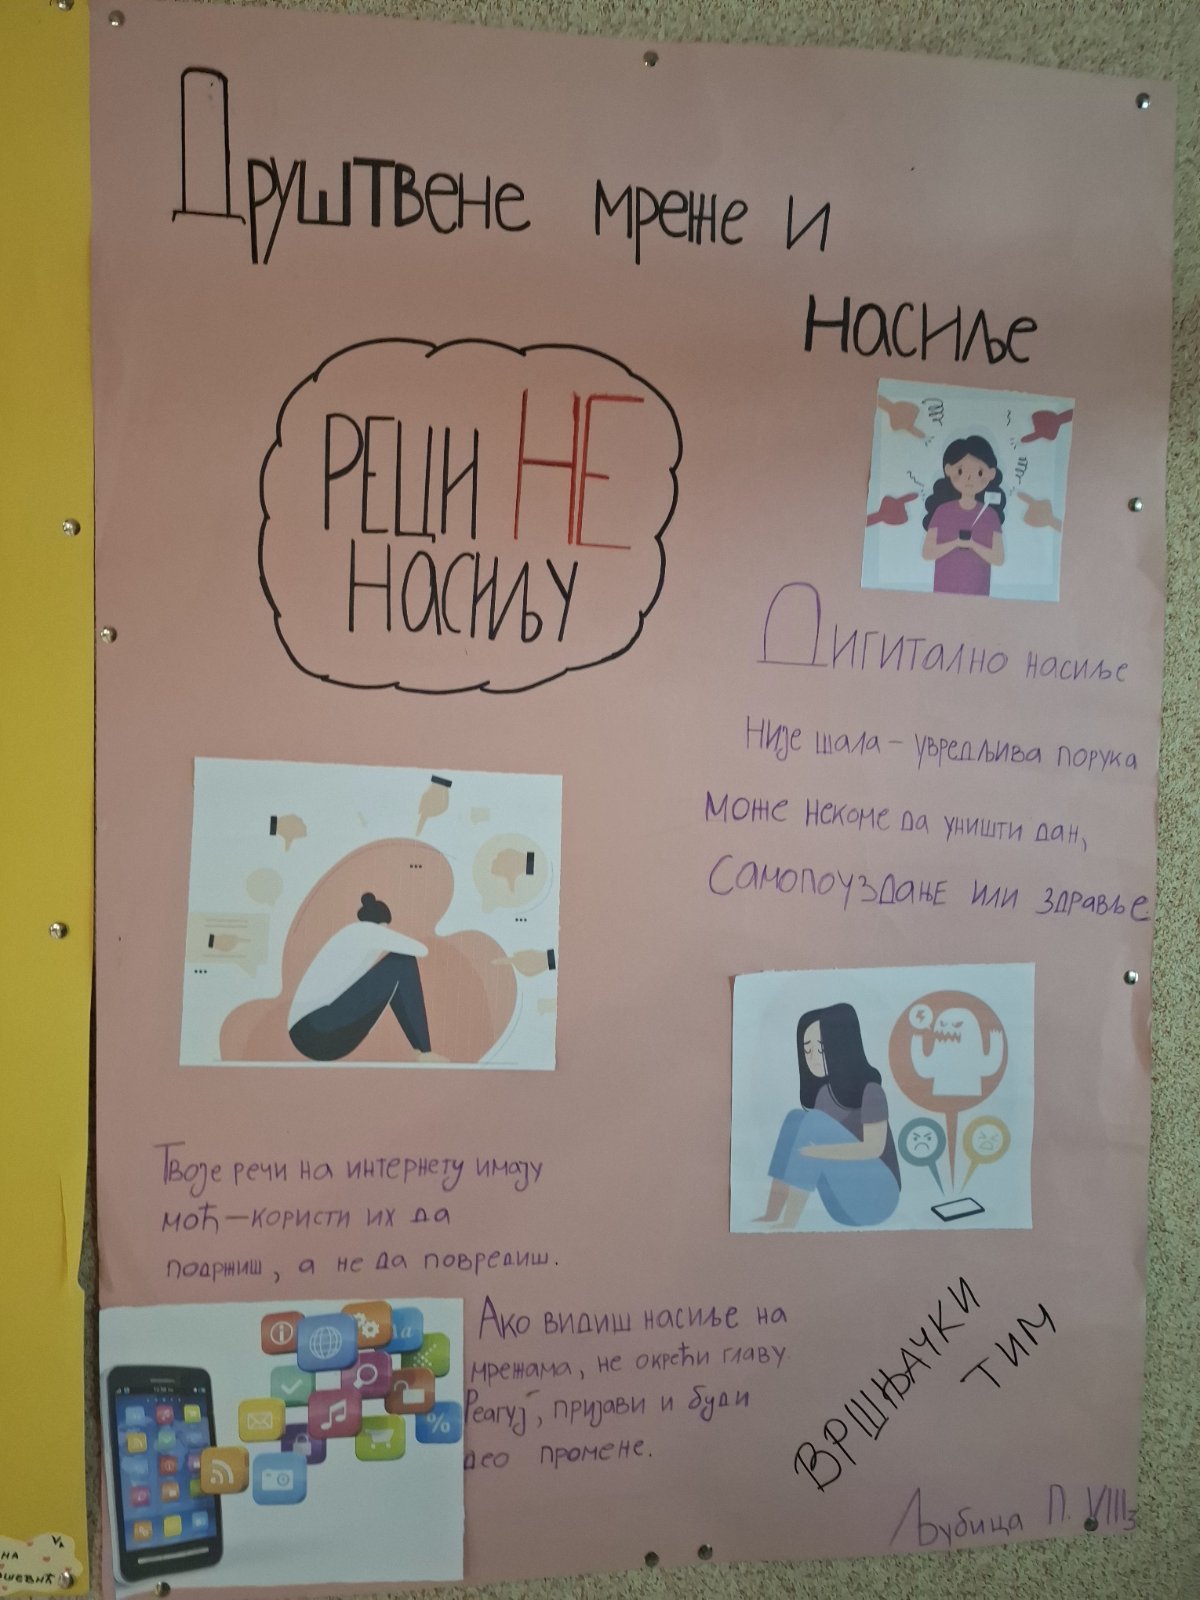 Друштвене мреже и
насиље
РЕЦИ НЕ
НАСИЉУ
Дигитално насиље
није шала - увредљива порука
може некоме да уништи дан,
самопоуздање или здравље
Твоје речи на интернету имају
моћ - користи их да
подржиш, а не да повредиш.
Ако видиш насиље на
мрежама, не окрећи главу
Реагуј, пријави и буди
део промене.
ВРШЊАЧКИ
ТИМ
Љубица П. VIII3